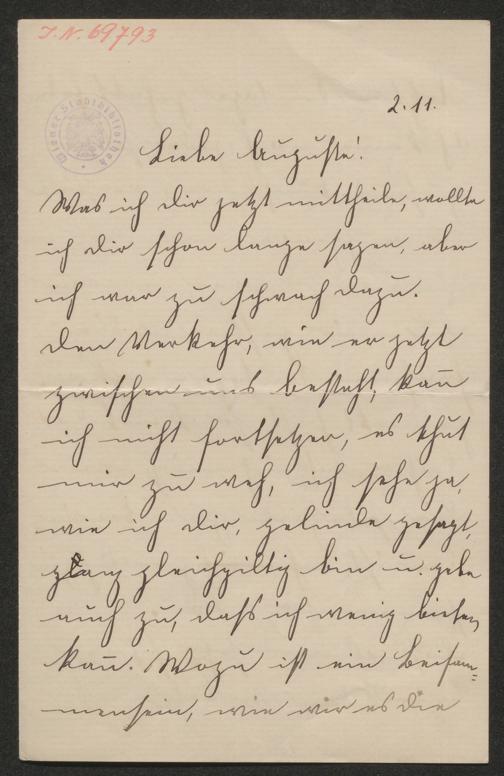 I. N. 69793
Wiener Stadtbibliothek
2.11.
Liebe Auguste!
Was ich dir jetzt mittheile, wollte
ich dir schon lange sagen, aber
ich war zu schwach dazu.
Den Verkehr, wie er jetzt
zwischen uns besteht, kann
ich nicht fortsetzen, es thut
mir zu weh, ich sehe ja,
wie ich dir, gelinde gesagt,
ganz gleichgiltig bin u. gebe
auch zu, dass ich wenig bieten
kann. Wozu ist ein Beisam=
mensein, wie wir es die